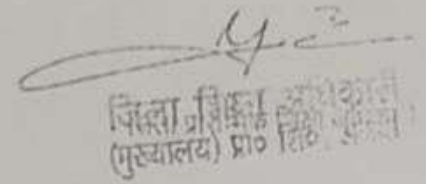 जिला प्रशिक्षण अधिकारी
(मुख्यालय) प्रा० शि०